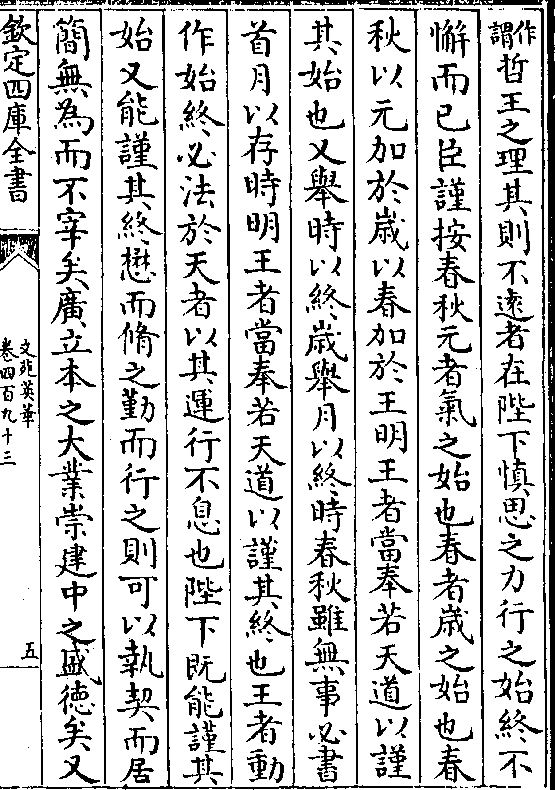 作謂哲王之理其則不遠者在陛下慎思之力行之始終不
懈而已臣謹按春秋元者氣之始也春者歲之始也春
秋以元加於歲以春加於王明王者當奉若天道以謹
其始也又舉時以終歲舉月以終時春秋雖無事必書
首月以存時明王者當奉若天道以謹其終也王者動
作始終必法於天者以其運行不息也陛下既能謹其
始又能謹其終懋而脩之勤而行之則可以執契而居
簡無為而不宰矣廣立本之大業崇建中之盛德矣又
欽定四庫全書
文苑英華
卷四百九十三
五